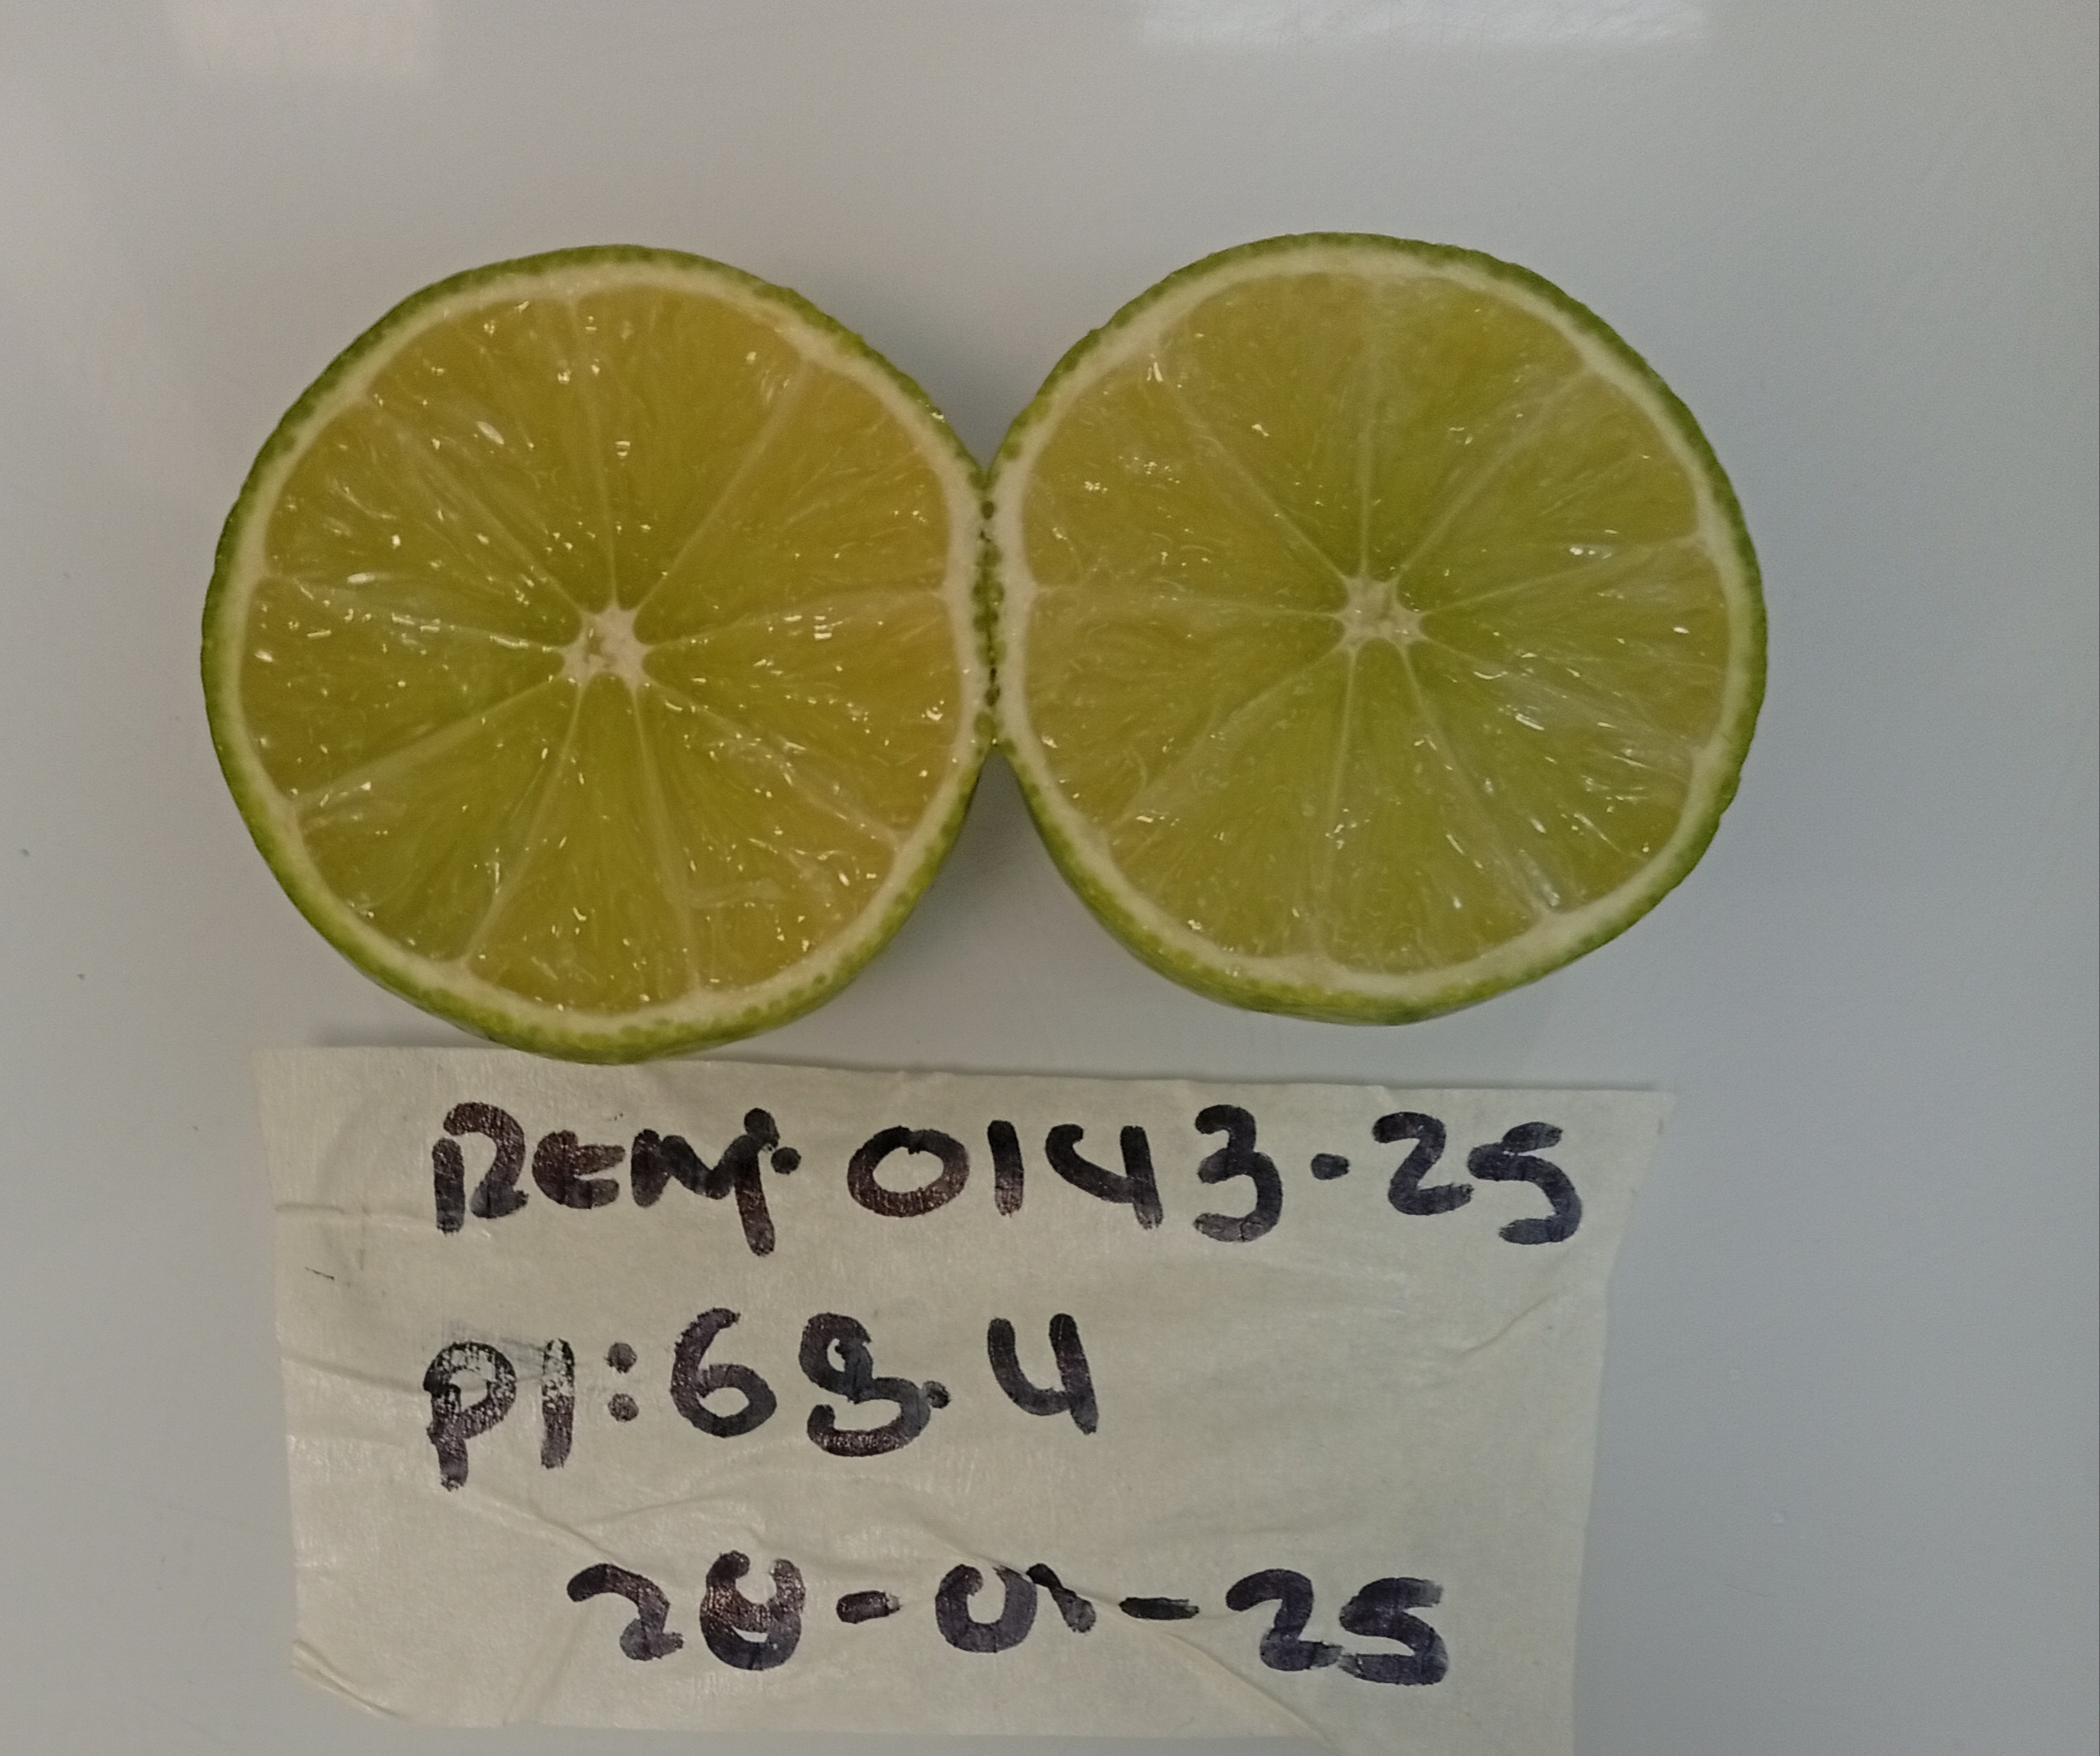 Rem. 0143-25
PI: 68.4
28-01-25